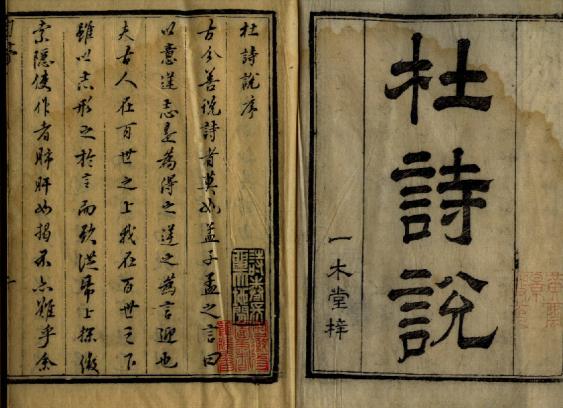 杜詩說
一木堂梓
杜詩說序
古今善說詩者莫如孟子孟之言曰
以意逆志是為得之逆之為言迎也
夫古人在百世之上我在百世之下
雖以志形之於言而欲從帋上探微
索隱使作者肺肝如揭不亦難乎余